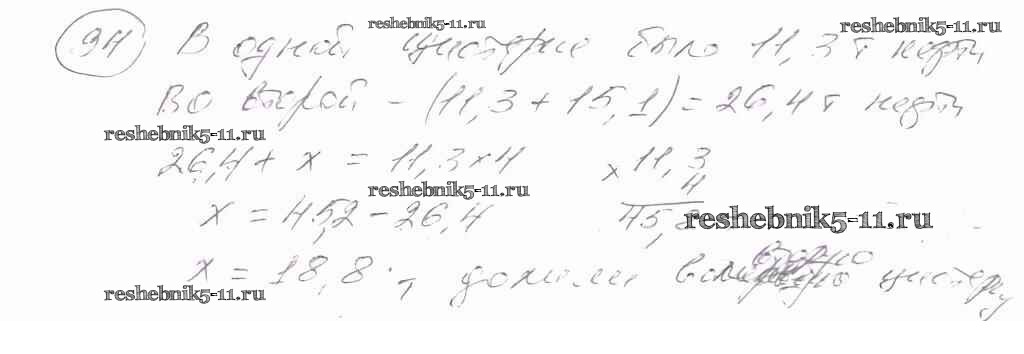 reshebnik5-11.ru reshebnik5-11.ru
94 В одной цистерне было 11,3 т нефти
Во второй - (11,3 + 15,1) = 26,4 т нефти
reshebnik5-11.ru
26,4 + x = 11,3 × 4 × 11,3
4
reshebnik5-11.ru
x = 45,2 - 26,4 45,2
reshebnik5-11.ru
x = 18,8 т долили вторую цистерну
reshebnik5-11.ru